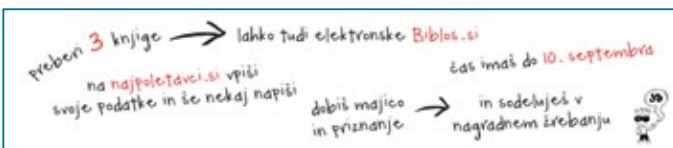 preberi 3 knjige
lahko tudi elektronske Biblos.si
na najpoletavci.si vpiši
svoje podatke in še nekaj napiši
čas imaš do 10. septembra
dobiš majico
in priznanje
in sodeluješ v
nagradnem žrebanju